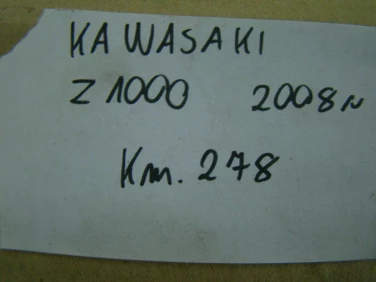 KAWASAKI
Z1000 2008N
Km. 278